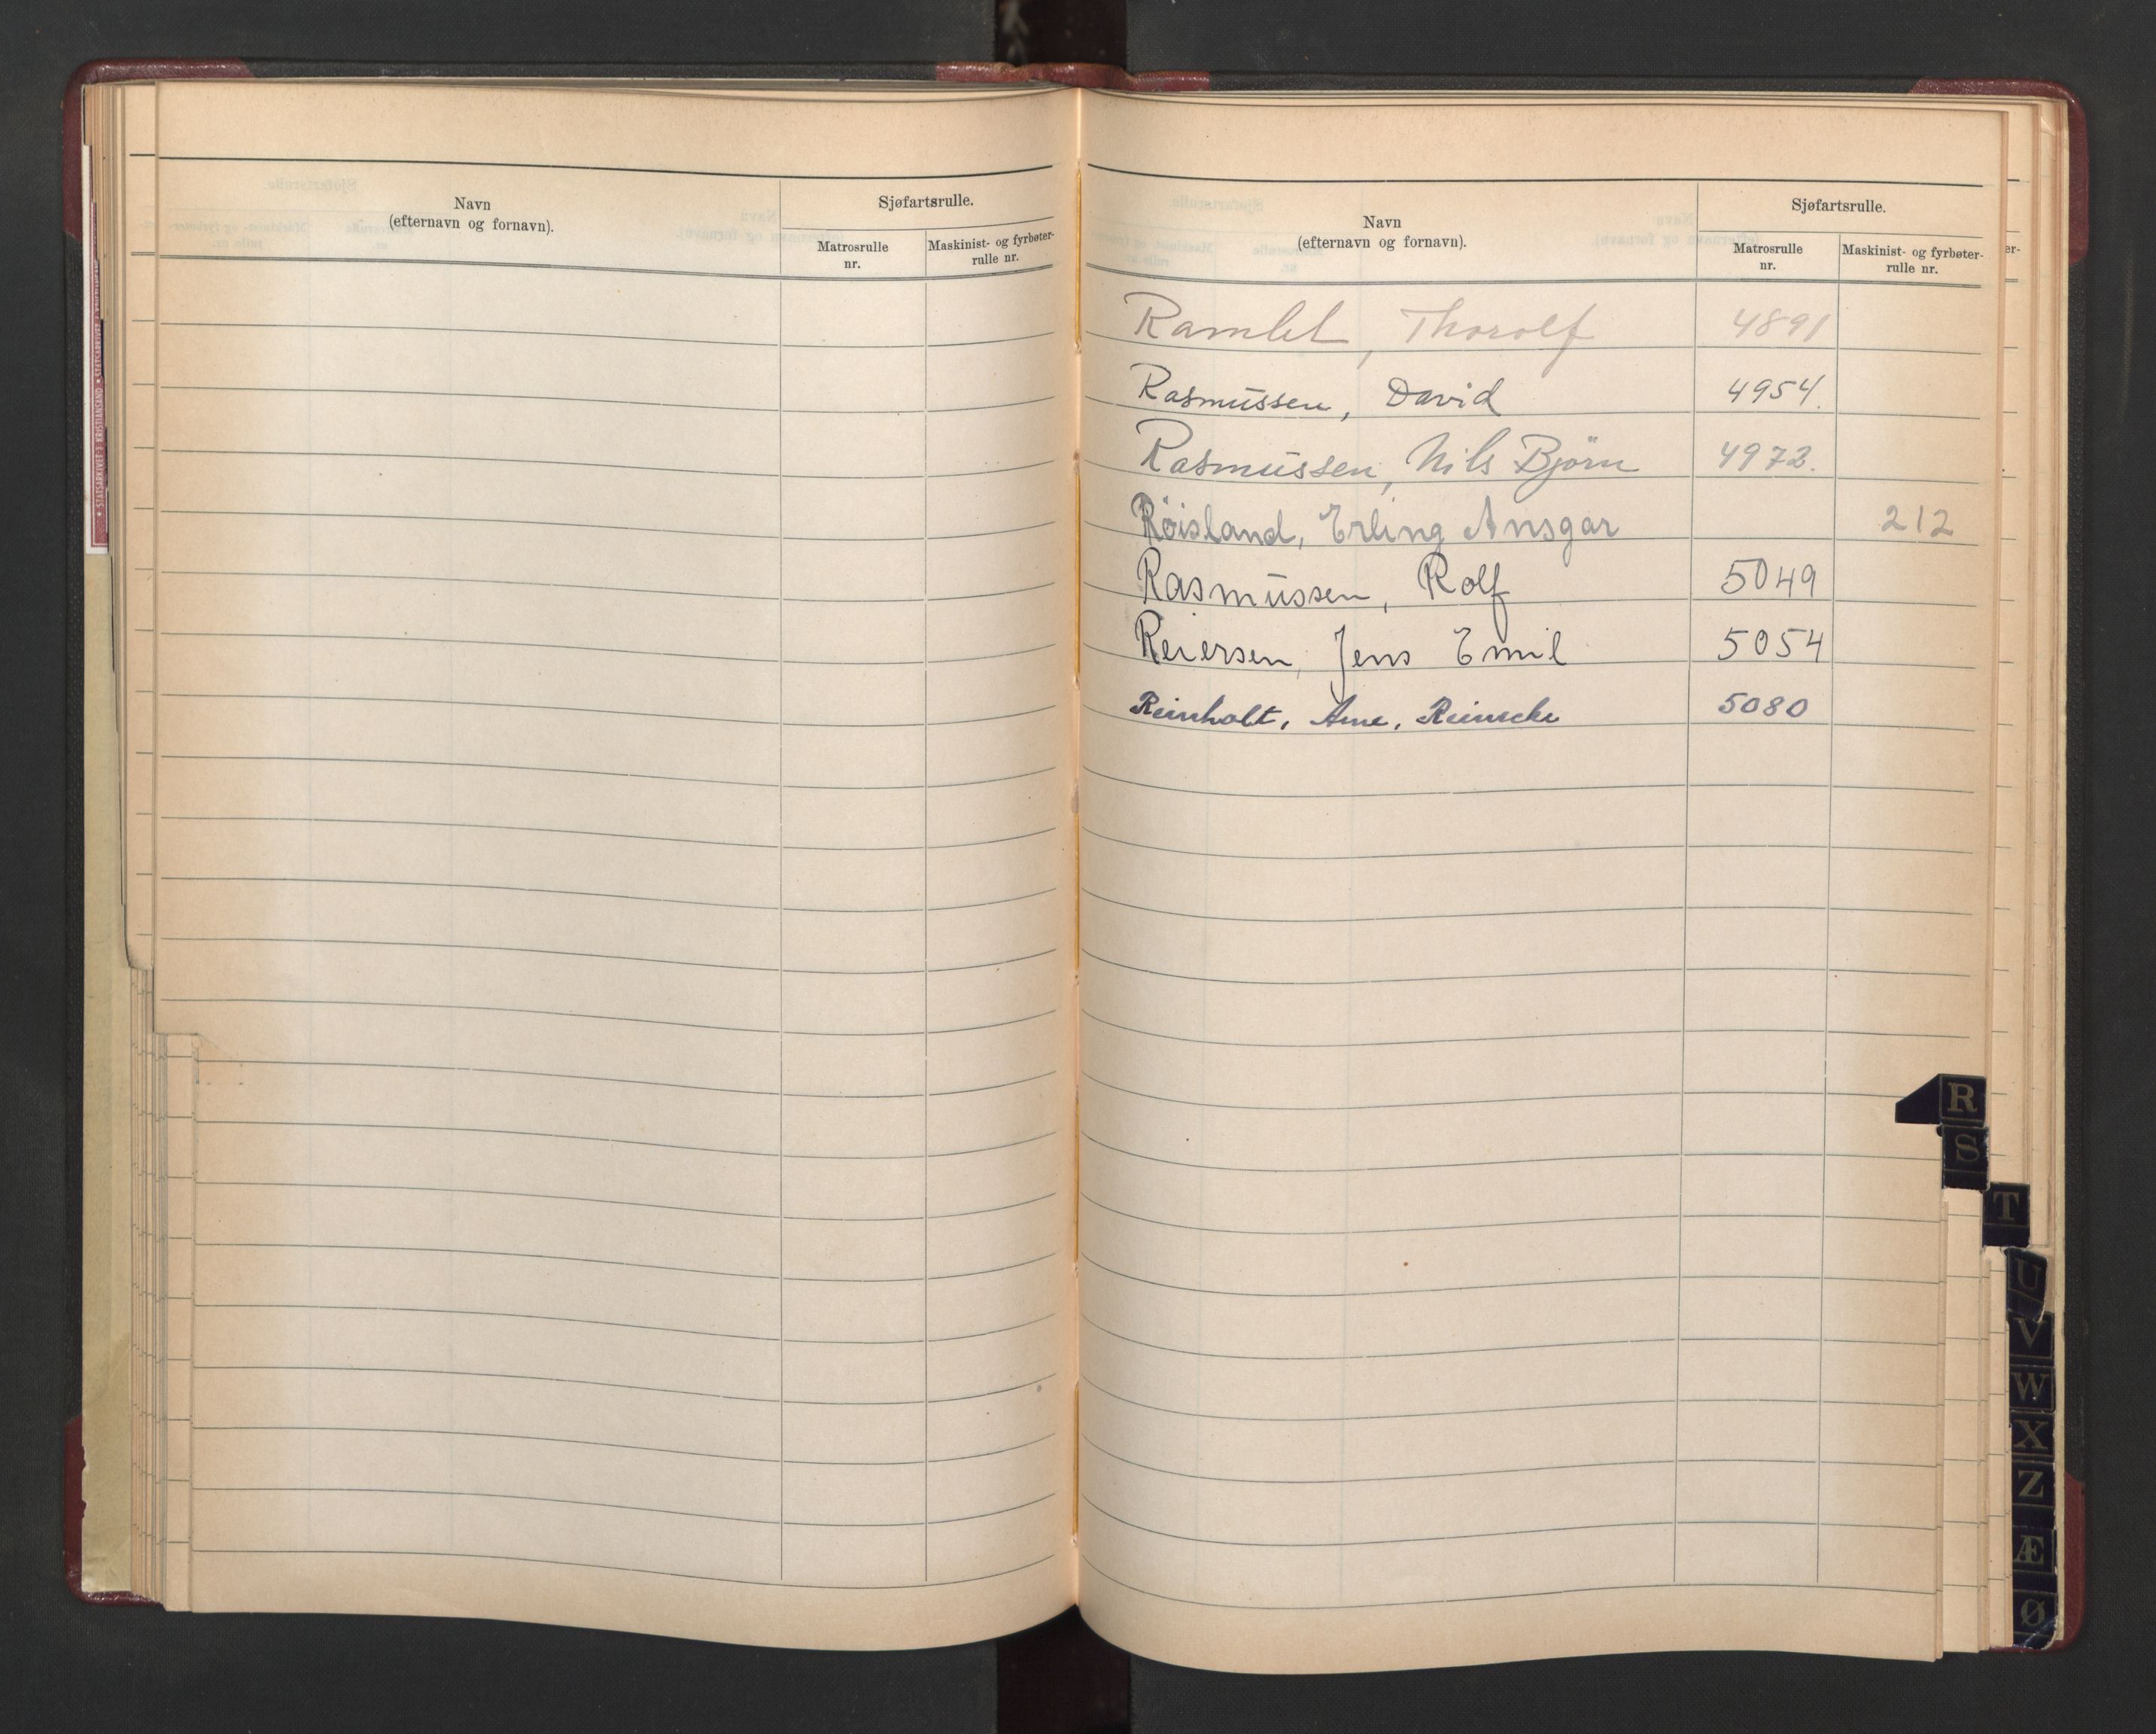 Navn
(efternavn og fornavn).
Sjøfartsrulle.
Matrosrulle
nr.
Maskinist- og fyrbøter-
rulle nr.
Navn
(efternavn og fornavn).
Sjøfartsrulle.
Matrosrulle
nr.
Maskinist- og fyrbøter-
rulle nr.
Ramlet, Thorolf 4891
Rasmussen, David 4954.
Rasmussen, Nils Björn 4972.
Röisland, Erling Ansgar 212
Rasmussen, Rolf 5049
Reiersen, Jens Emil 5054
Reinholt, Arne, Reinscke 5080
R
S
T
U
V
W
X
Z
Æ
Ø